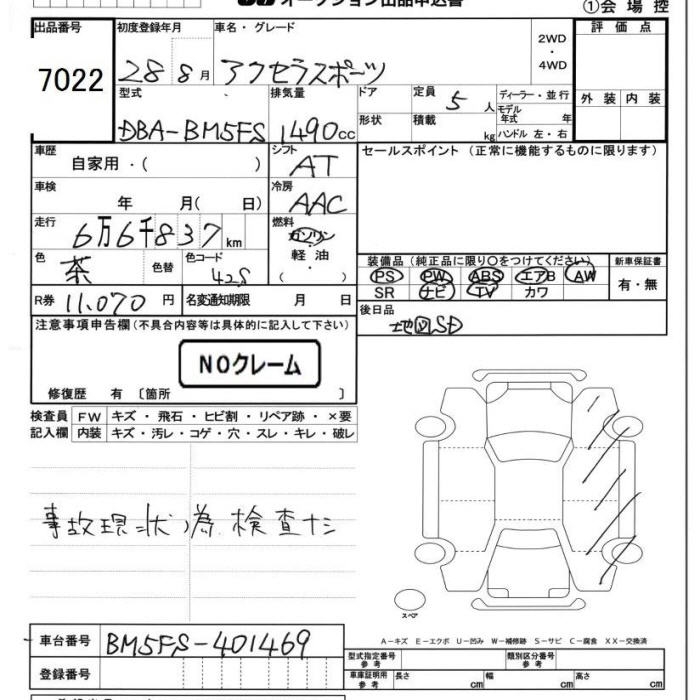 オークション出品申込書
①会場控
出品番号 7022
初度登録年月 28 8月
車名・グレード アクセラスポーツ
2WD
・
4WD
評価点
外装 内装
型式 DBA-BM5FS
排気量 1490cc
ドア
形状
定員 5人
積載 kg
ディーラー・並行
モデル年式 年
ハンドル 左・右
車歴 自家用・( )
シフト AT
セールスポイント(正常に機能するものに限ります)
車検 年 月( 日)
冷房 AAC
走行 6万6千837km
燃料 ガソリン
軽油
( )
色 茶 色替 色コード 42S
装備品(純正品に限り○をつけてください)
PS PW ABS エアB AW
SR ナビ TV カワ
新車保証書
有・無
R券 11,070円 名変通知期限 月 日
後日品
地図SD
注意事項申告欄(不具合内容等は具体的に記入して下さい)
NOクレーム
修復歴 有〔箇所 〕
検査員 FW キズ・飛石・ヒビ割・リペア跡・×要
記入欄 内装 キズ・汚レ・コゲ・穴・スレ・キレ・破レ
事故現状為検査ナシ
スペア
A-キズ E-エクボ U-凹み W-補修跡 S-サビ C-腐食 XX-交換済
車台番号 BM5FS-401469
登録番号
型式指定番号 参考
類別区分番号 参考
車庫証明用 参考 長さ cm 幅 cm 高さ cm